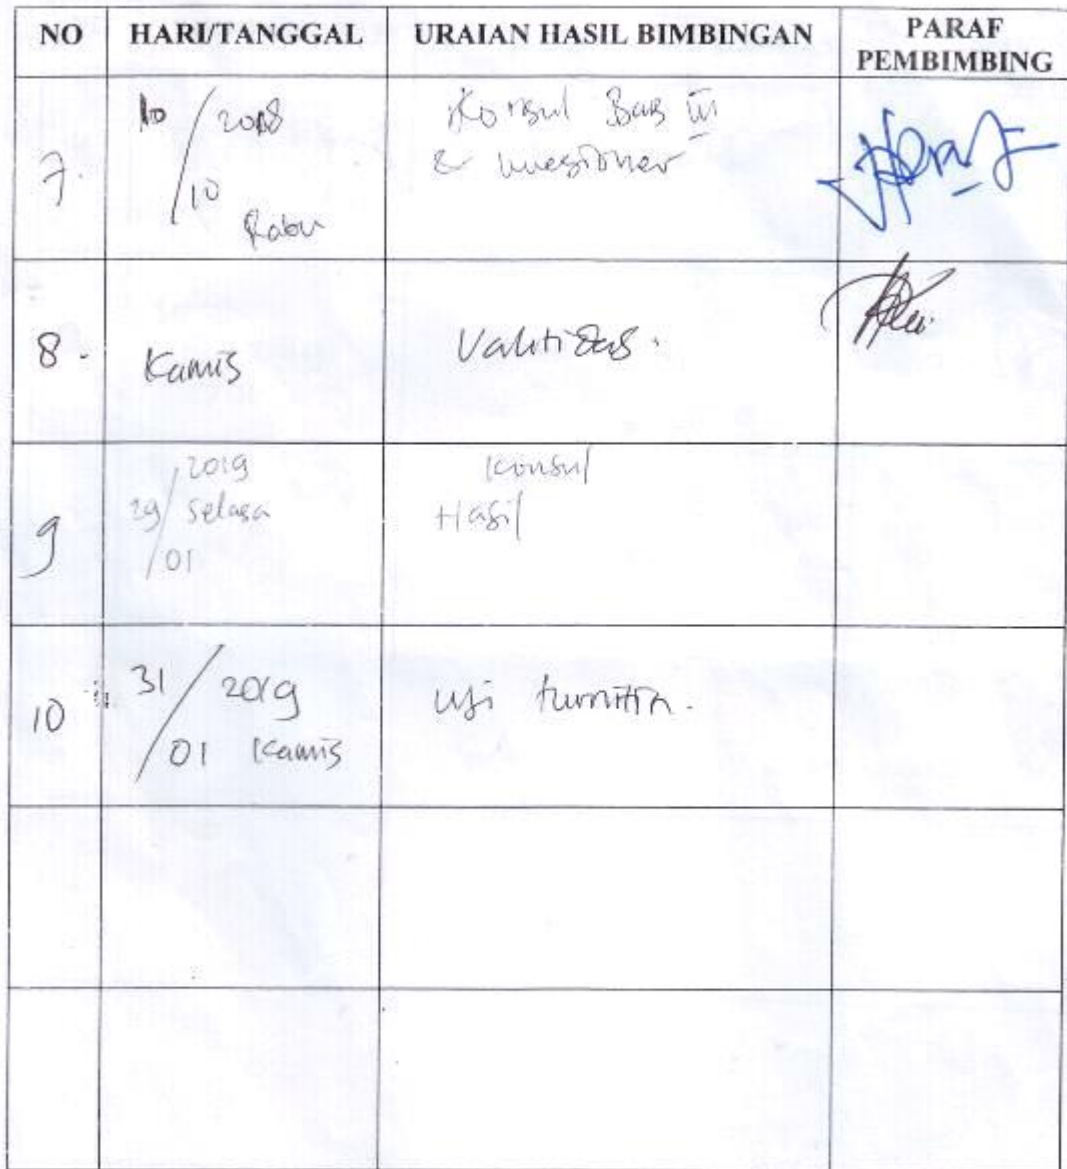 NO HARI/TANGGAL URAIAN HASIL BIMBINGAN PARAF PEMBIMBING
7. 10/10 2018 Rabu Konsul Bab III
& kuesioner
8. Kamis Validitas.
9 29/01 2019 Selasa Konsul
Hasil
10 31/01 2019 Kamis Uji turnitin.